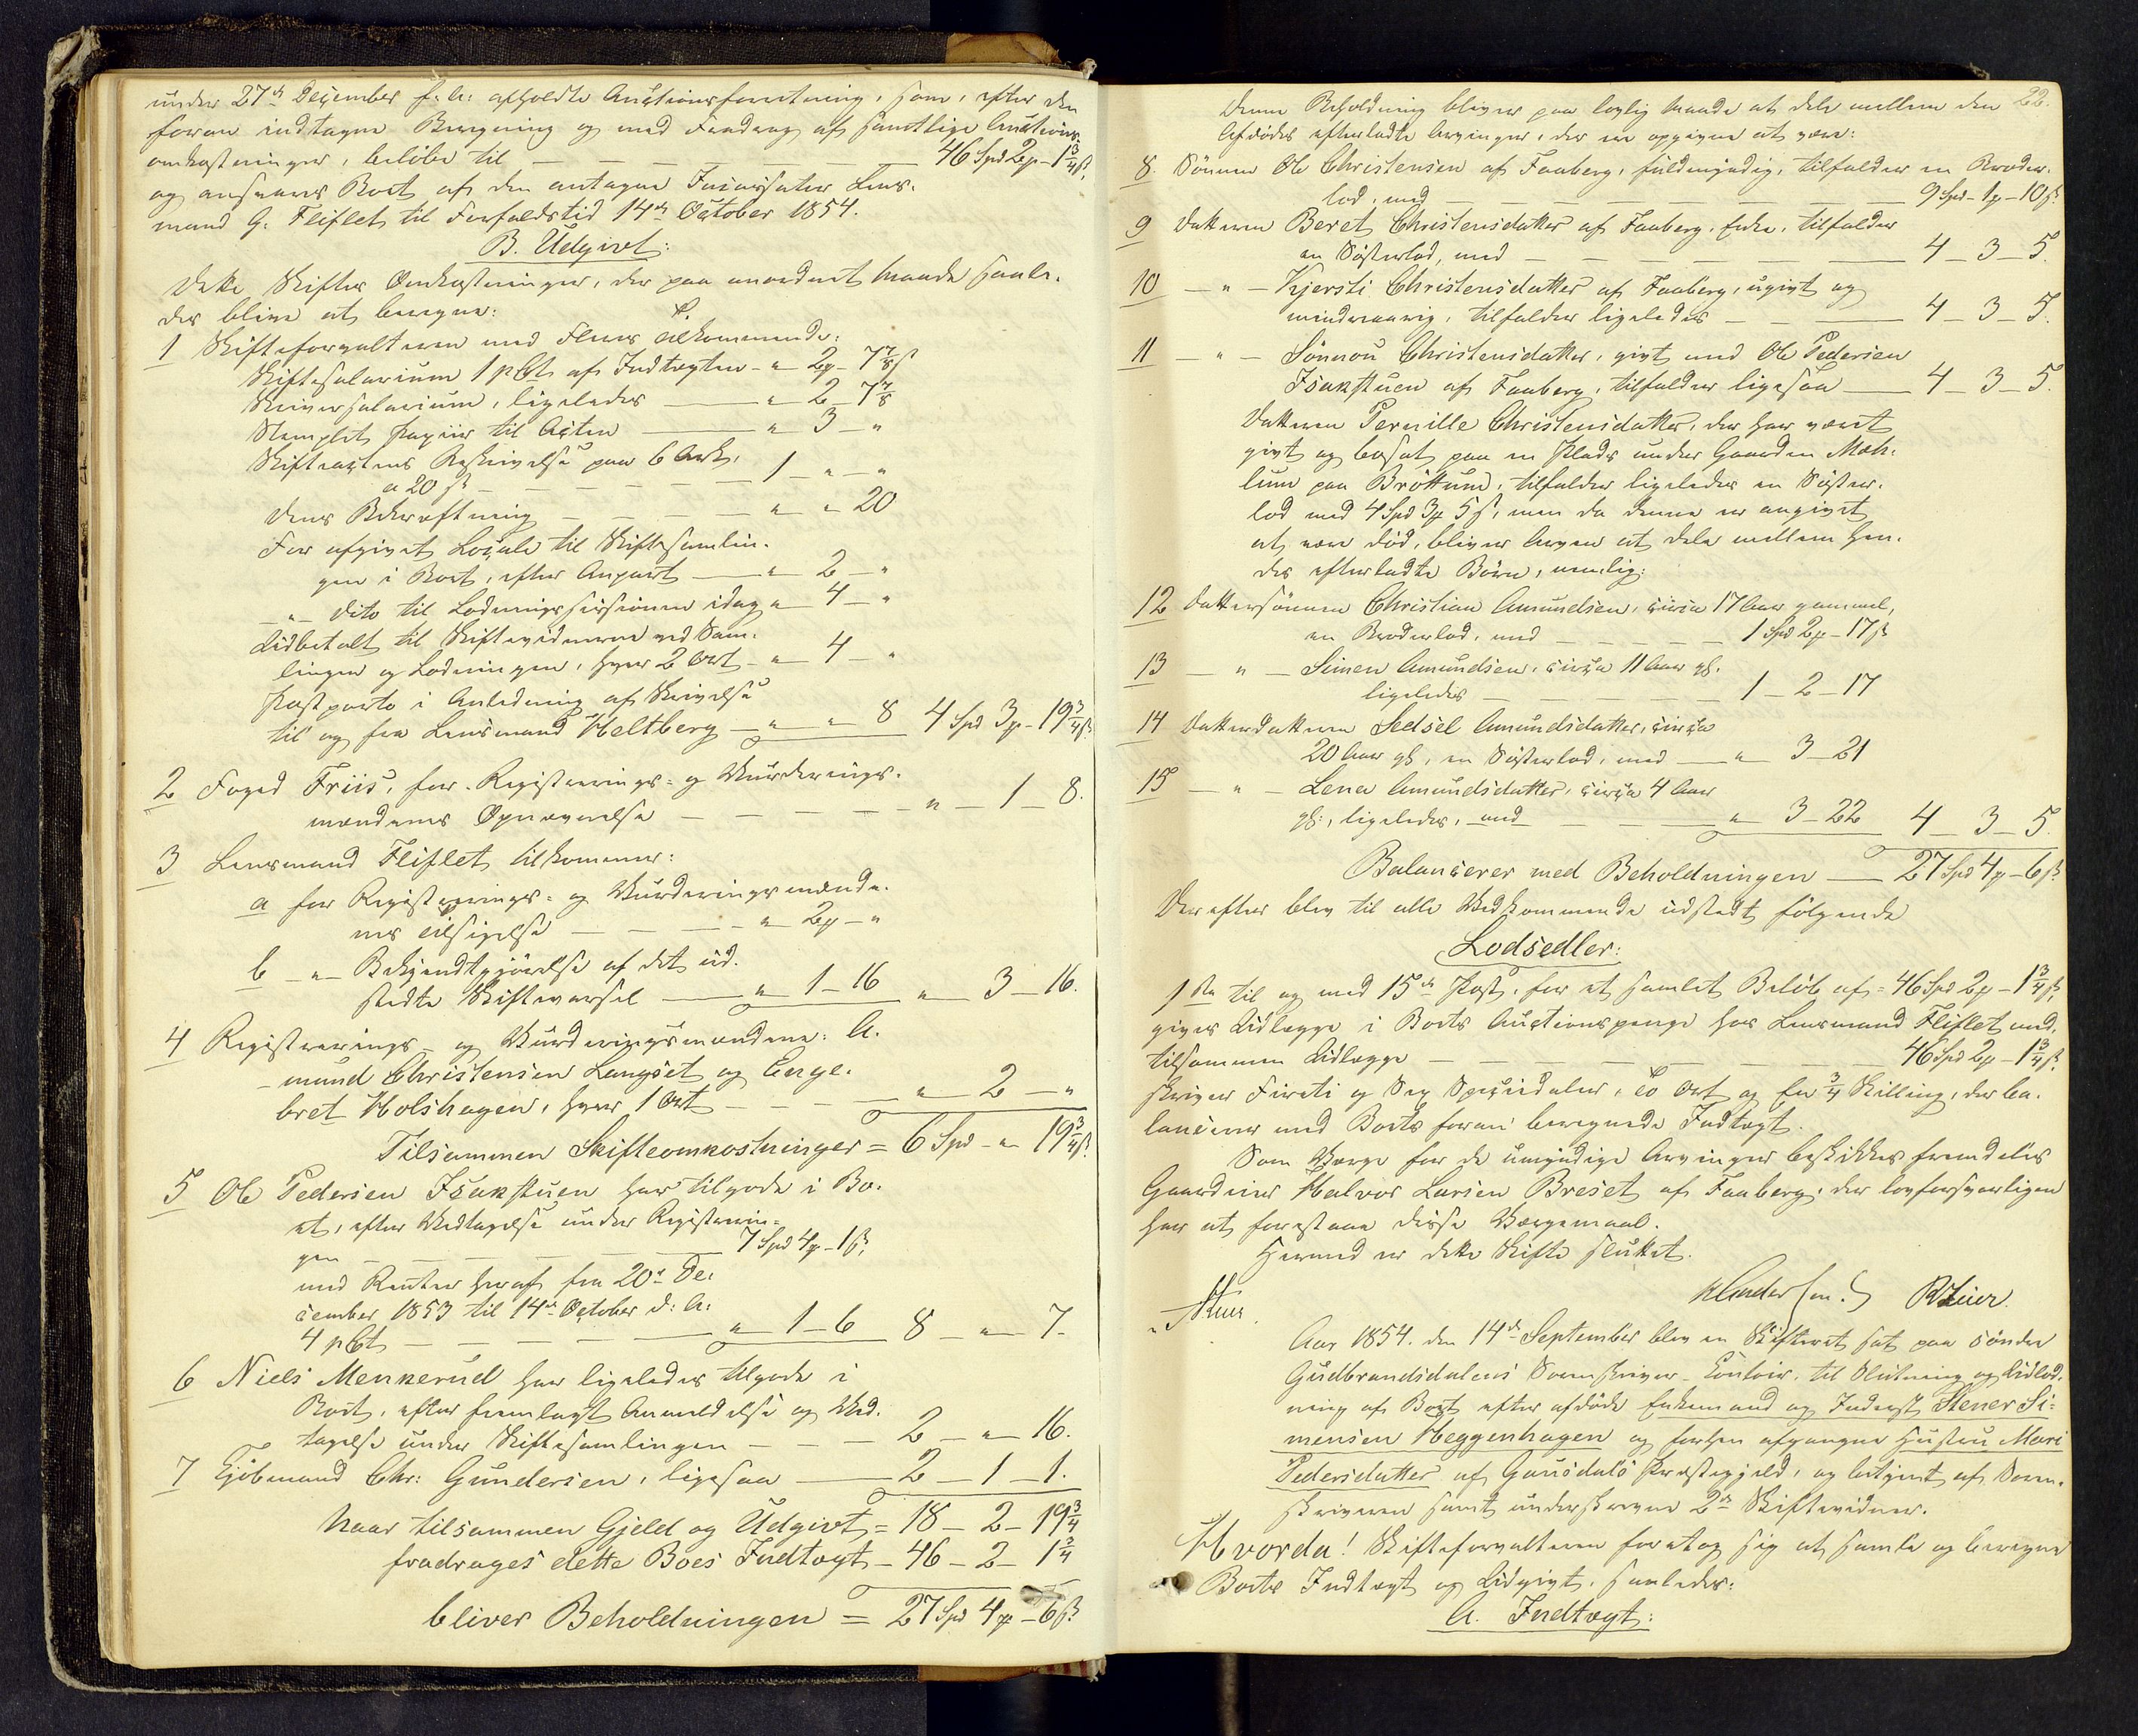 under 27de December f: A: afholdte Auctionsforretning, som, efter den
foran indtagne Beregning og med Fradrag af samtlige Auctions
omkostninger, beløbe til — — — — — 46 Spd 2 ℔ - 1 3/4 ß,
og ansvares Boet af den antagne Incassator Lens-
mand G. Fliflet til Forfaldstid 14de October 1854.
B. Udgivt:
Dette Skiftes Omkostninger, der paa anordnet Maade saale-
des blive at beregne:
1 Skifteforvalteren med Flere tilkommende:
Skiftesalarium 1 pCt af Indtægten - " 2 ℔ - 7 7/8 ß
Skriversalarium, ligeledes — " 2 - 7 7/8
Stemplet Papiir til Acten — " 3 - "
Skifteactens Beskrivelse paa 6 Ark,
a 20 ß — — — — 1 - " - "
Dens Bekræftning — — — " " 20
For afgivet Locale til Skiftesamlin-
gen i Boet, efter Anpart — " 2 - "
- " - dito til Lodningssessionen idag " 4 - "
Udbetalt til Skiftevidnerne ved Sam-
lingen og Lodningen, hver 2 Ort - " 4 - "
Postporto i Anledning af Skrivelse
til og fra Lensmand Heltberg - " " 8 4 Spd 3 ℔ - 19 3/4 ß
2 Foged Friis, for Registrerings- og Vurderings-
mændenes Opnævnelse — — — " - 1 - 8.
3 Lensmand Fliflet tilkommer:
a for Registrerings- og Vurderingsmænde-
nes Tilsigelse — — — " 2 ℔ - "
b - " - Bekjendtgjørelse af det ud-
stedte Skiftevarsel — " 1 - 16 " 3 - 16.
4 Registrerings- og Vurderingsmændene: A-
mund Christensen Langset og Enge-
bret Holshagen, hver 1 Ort — — " 2 - "
Tilsammen Skifteomkostninger = 6 Spd - " 19 3/4 ß.
5 Ole Pedersen Isakstuen har tilgode i Bo-
et, efter Vedtagelse under Registerin-
gen — — — — 7 Spd 4 ℔ - 1 ß,
med Renter heraf fra 20de De-
cember 1853 til 14de October d: A:
4 pCt — — — " 1 - 6 8 - " - 7.
6 Niels Menkerud har ligeledes tilgode i
Boet, efter fremlagt Anmeldelse og Ved-
tagelse under Skiftesamlingen — — 2 - " - 16.
7 Kjøbmand Chr: Gundersen, ligesaa — 2 - 1 - 1.
Naar tilsammen Gjeld og Udgivt = 18 - 2 - 19 3/4
fradrages dette Boes Indtægt - 46 - 2 - 1 3/4
bliver Beholdningen = 27 Spd 4 ℔ - 6 ß.
22.
Denne Beholdning bliver paa lovlig Maade at dele mellem den
Afdødes efterladte Arvinger, der er opgivne at være:
8. Sønnen Ole Christensen af Faaberg, fuldmyndig, tilfalder en Broder-
lod, med — — — — 9 Spd - 1 ℔ - 10 ß.
9 Datteren Beret Christensdatter af Faaberg, Enke, tilfalder
en Søsterlod, med — — — — 4 - 3 - 5.
10 - " - Kjersti Christensdatter af Faaberg, ugivt og
mindreaarig, tilfalder ligeledes — — 4 - 3 - 5.
11 - " - Sönnou Christensdatter, givt med Ole Pedersen
Isakstuen af Faaberg, tilfalder ligesaa — 4 - 3 - 5.
Datteren Pernille Christensdatter, der har været
givt og bosat paa en Plads under Gaarden Mæh-
lum paa Bröttum, tilfalder ligeledes en Søster-
lod med 4 Spd 3 ℔ 5 ß, men da denne er angivet
at være død, bliver Arven at dele mellem hen-
des efterladte Børn, nemlig:
12 Dattersønnen Christian Amundsen, circa 17 Aar gammel,
en Broderlod, med — — — 1 Spd 2 ℔ - 17 ß
13 - " - Simen Amundsen, circa 11 Aar gl.
ligeledes — — — 1 - 2 - 17
14 Datterdatteren Sedsel Amundsdatter, circa
20 Aar gl, en Søsterlod, med — " 3 - 21
15 - " - Lena Amundsdatter, circa 4 Aar
gl:, ligeledes, med — — " 3 - 22 4 - 3 - 5.
Balancerer med Beholdningen — 27 Spd 4 ℔ - 6 ß.
Derefter blev til alle Vedkommende udstedt følgende
Lodsedler:
1ste til og med 15de Post, for et samlet Beløb af = 46 Spd 2 ℔ - 1 3/4 ß,
gives Udlægge i Boets Auctionspenge hos Lensmand Fliflet med,
tilsammen Udlægge — — — — 46 Spd 2 ℔ - 1 3/4 ß,
skriver Fireti og Sex Speciedaler, To Ort og En 3/4 Skilling, der ba-
lancerer med Boets foran beregnede Indtægt.
Som Værge for de umyndige Arvinger beskikkes fremdeles
Gaardmand Halvor Larsen Breset af Faaberg, der lovforsvarligen
har at forestaae disse Værgemaal.
Hermed er dette Skifte sluttet.
Aar 1854. den 14de September blev en Skifteret sat paa Søndre
Gudbrandsdalens Sorenskriver-Contoir, til Slutning og Udlod-
ning af Boet efter afdøde Enkemand og Inderst Stener Si-
mensen Heggenhagen og forhen afgangne Hustru Mari
Pedersdatter af Gausdals Præstegjeld, og betjent af Soren-
skriveren samt underskrevne 2de Skiftevidner.
Hvorda! Skifteforvalteren foretog sig at samle og beregne
Boets Indtægt og Udgivt, saaledes:
A. Indtægt: